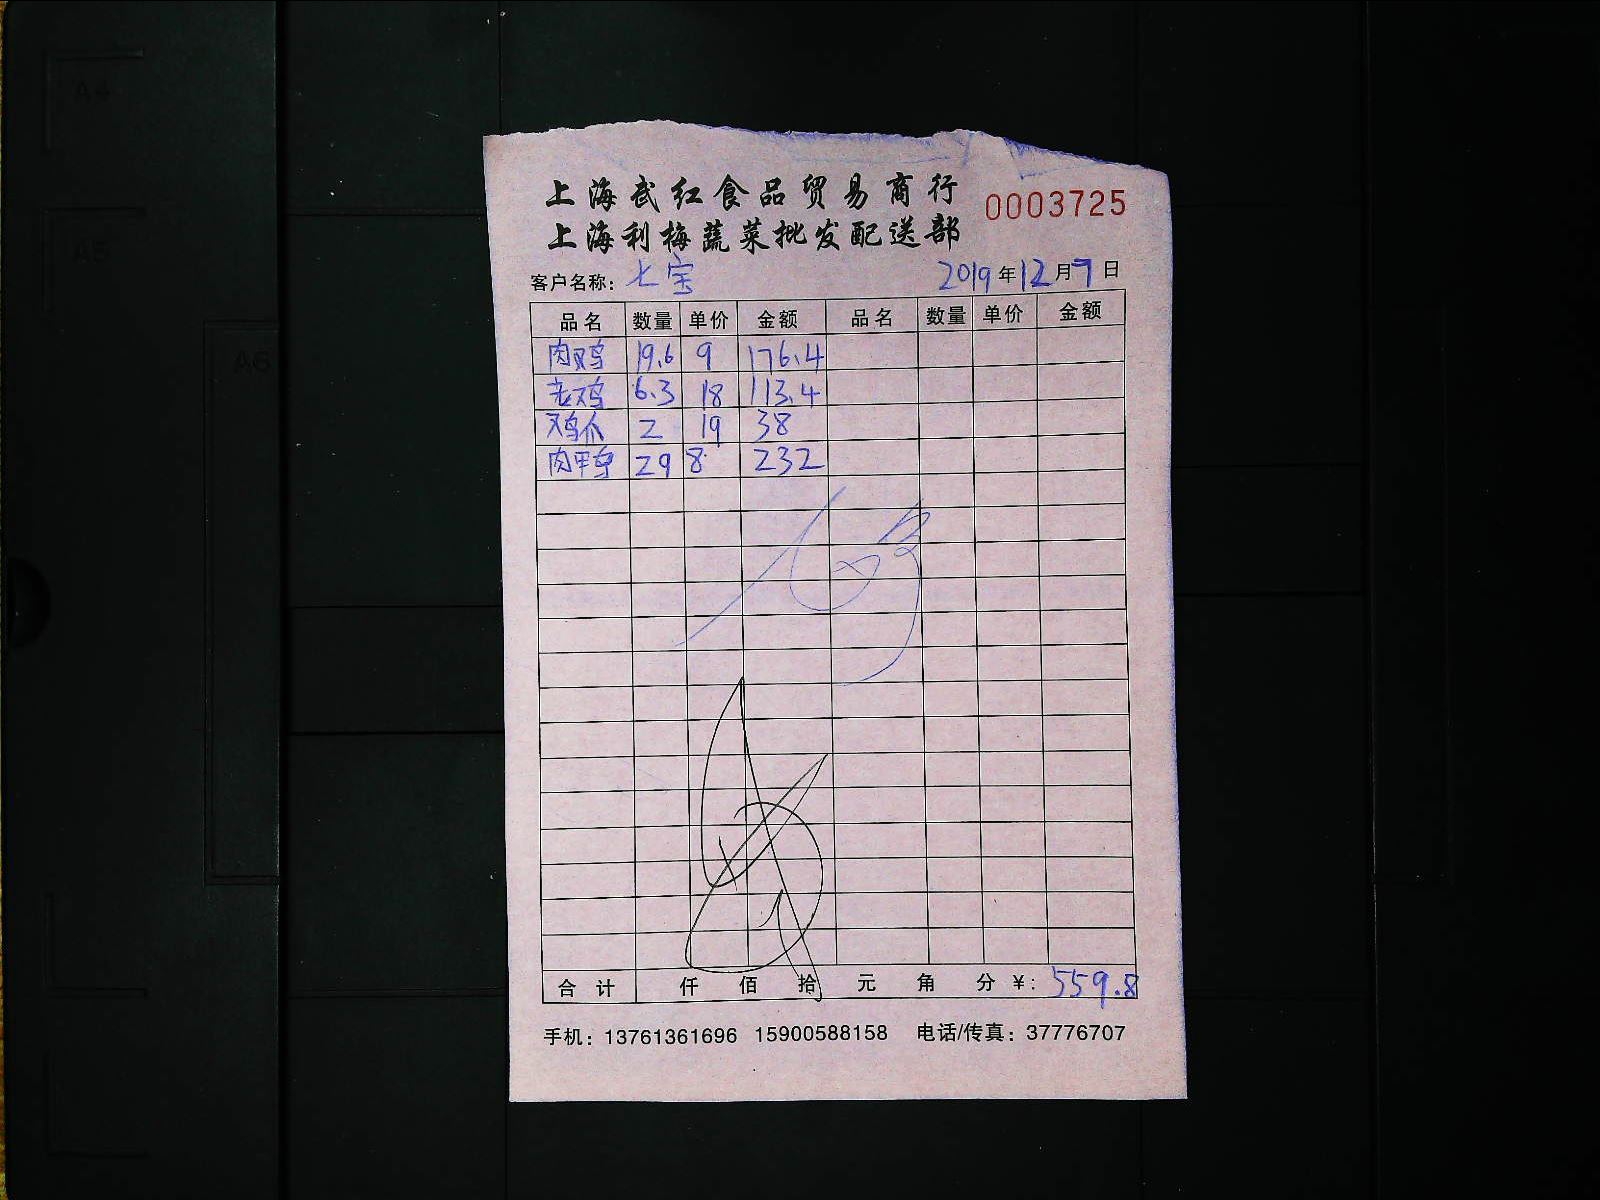 上海武红食品贸易商行
上海利梅蔬菜批发配送部
0003725
客户名称：七宝 2019年12月7日
品名 数量 单价 金额 品名 数量 单价 金额
肉鸡 19.6 9 176.4
老鸡 6.3 18 113.4
鸡爪 2 19 38
肉鸭 29 8 232
合计 仟 佰 拾 元 角 分 ¥：559.8
手机：13761361696 15900588158 电话/传真：37776707
A4
A5
A6